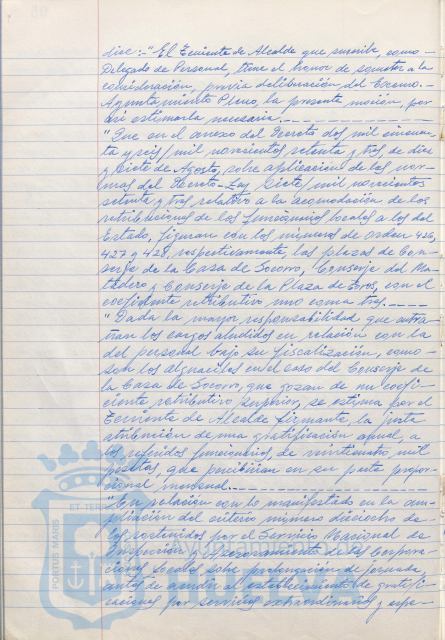 dice:-"El Teniente de Alcalde que suscribe como
Delegado de Personal, tiene el honor de someter a la
consideración, previa deliberación del Excmo.-
Ayuntamiento Pleno, la presente moción, por
así estimarla necesaria.-----------
"Que en el anexo del Decreto dos mil cincuen-
ta y seis/mil novecientos setenta y tres de dieci-
siete de Agosto, sobre aplicación de las nor-
mas del Decreto-Ley siete/mil novecientos
setenta y tres relativo a la acomodación de las
retribuciones de los funcionarios locales a los del
Estado, figuran con los números de orden 426,
427 y 428, respectivamente, las plazas de Con-
serje de la Casa de Socorro, Conserje del Ma-
tadero y Conserje de la Plaza de Toros, con el
coeficiente retributivo uno coma tres.----
"Dada la mayor responsabilidad que entra-
ñan los cargos aludidos en relación con la
del personal bajo su fiscalización, como-
son los alguaciles en el caso del Conserje de
la Casa de Socorro, que gozan de un coefi-
ciente retributivo superior, se estima por el
Teniente de Alcalde firmante, la justa
atribución de una gratificación anual, a
los referidos funcionarios de veinticuatro mil
pesetas, que percibirían en su parte propor-
cional mensual.----------
"En relación con lo manifestado en la am-
pliación del criterio número dieciocho de-
los sostenidos por el Servicio Nacional de
Inspección y Asesoramiento de las Corpora-
ciones Locales sobre prolongación de jornada,
antes de acudir al establecimiento de gratifi-
caciones por servicios extraordinarios y espe-
PORTUS MARIS
ET TERRAE
HUELVA